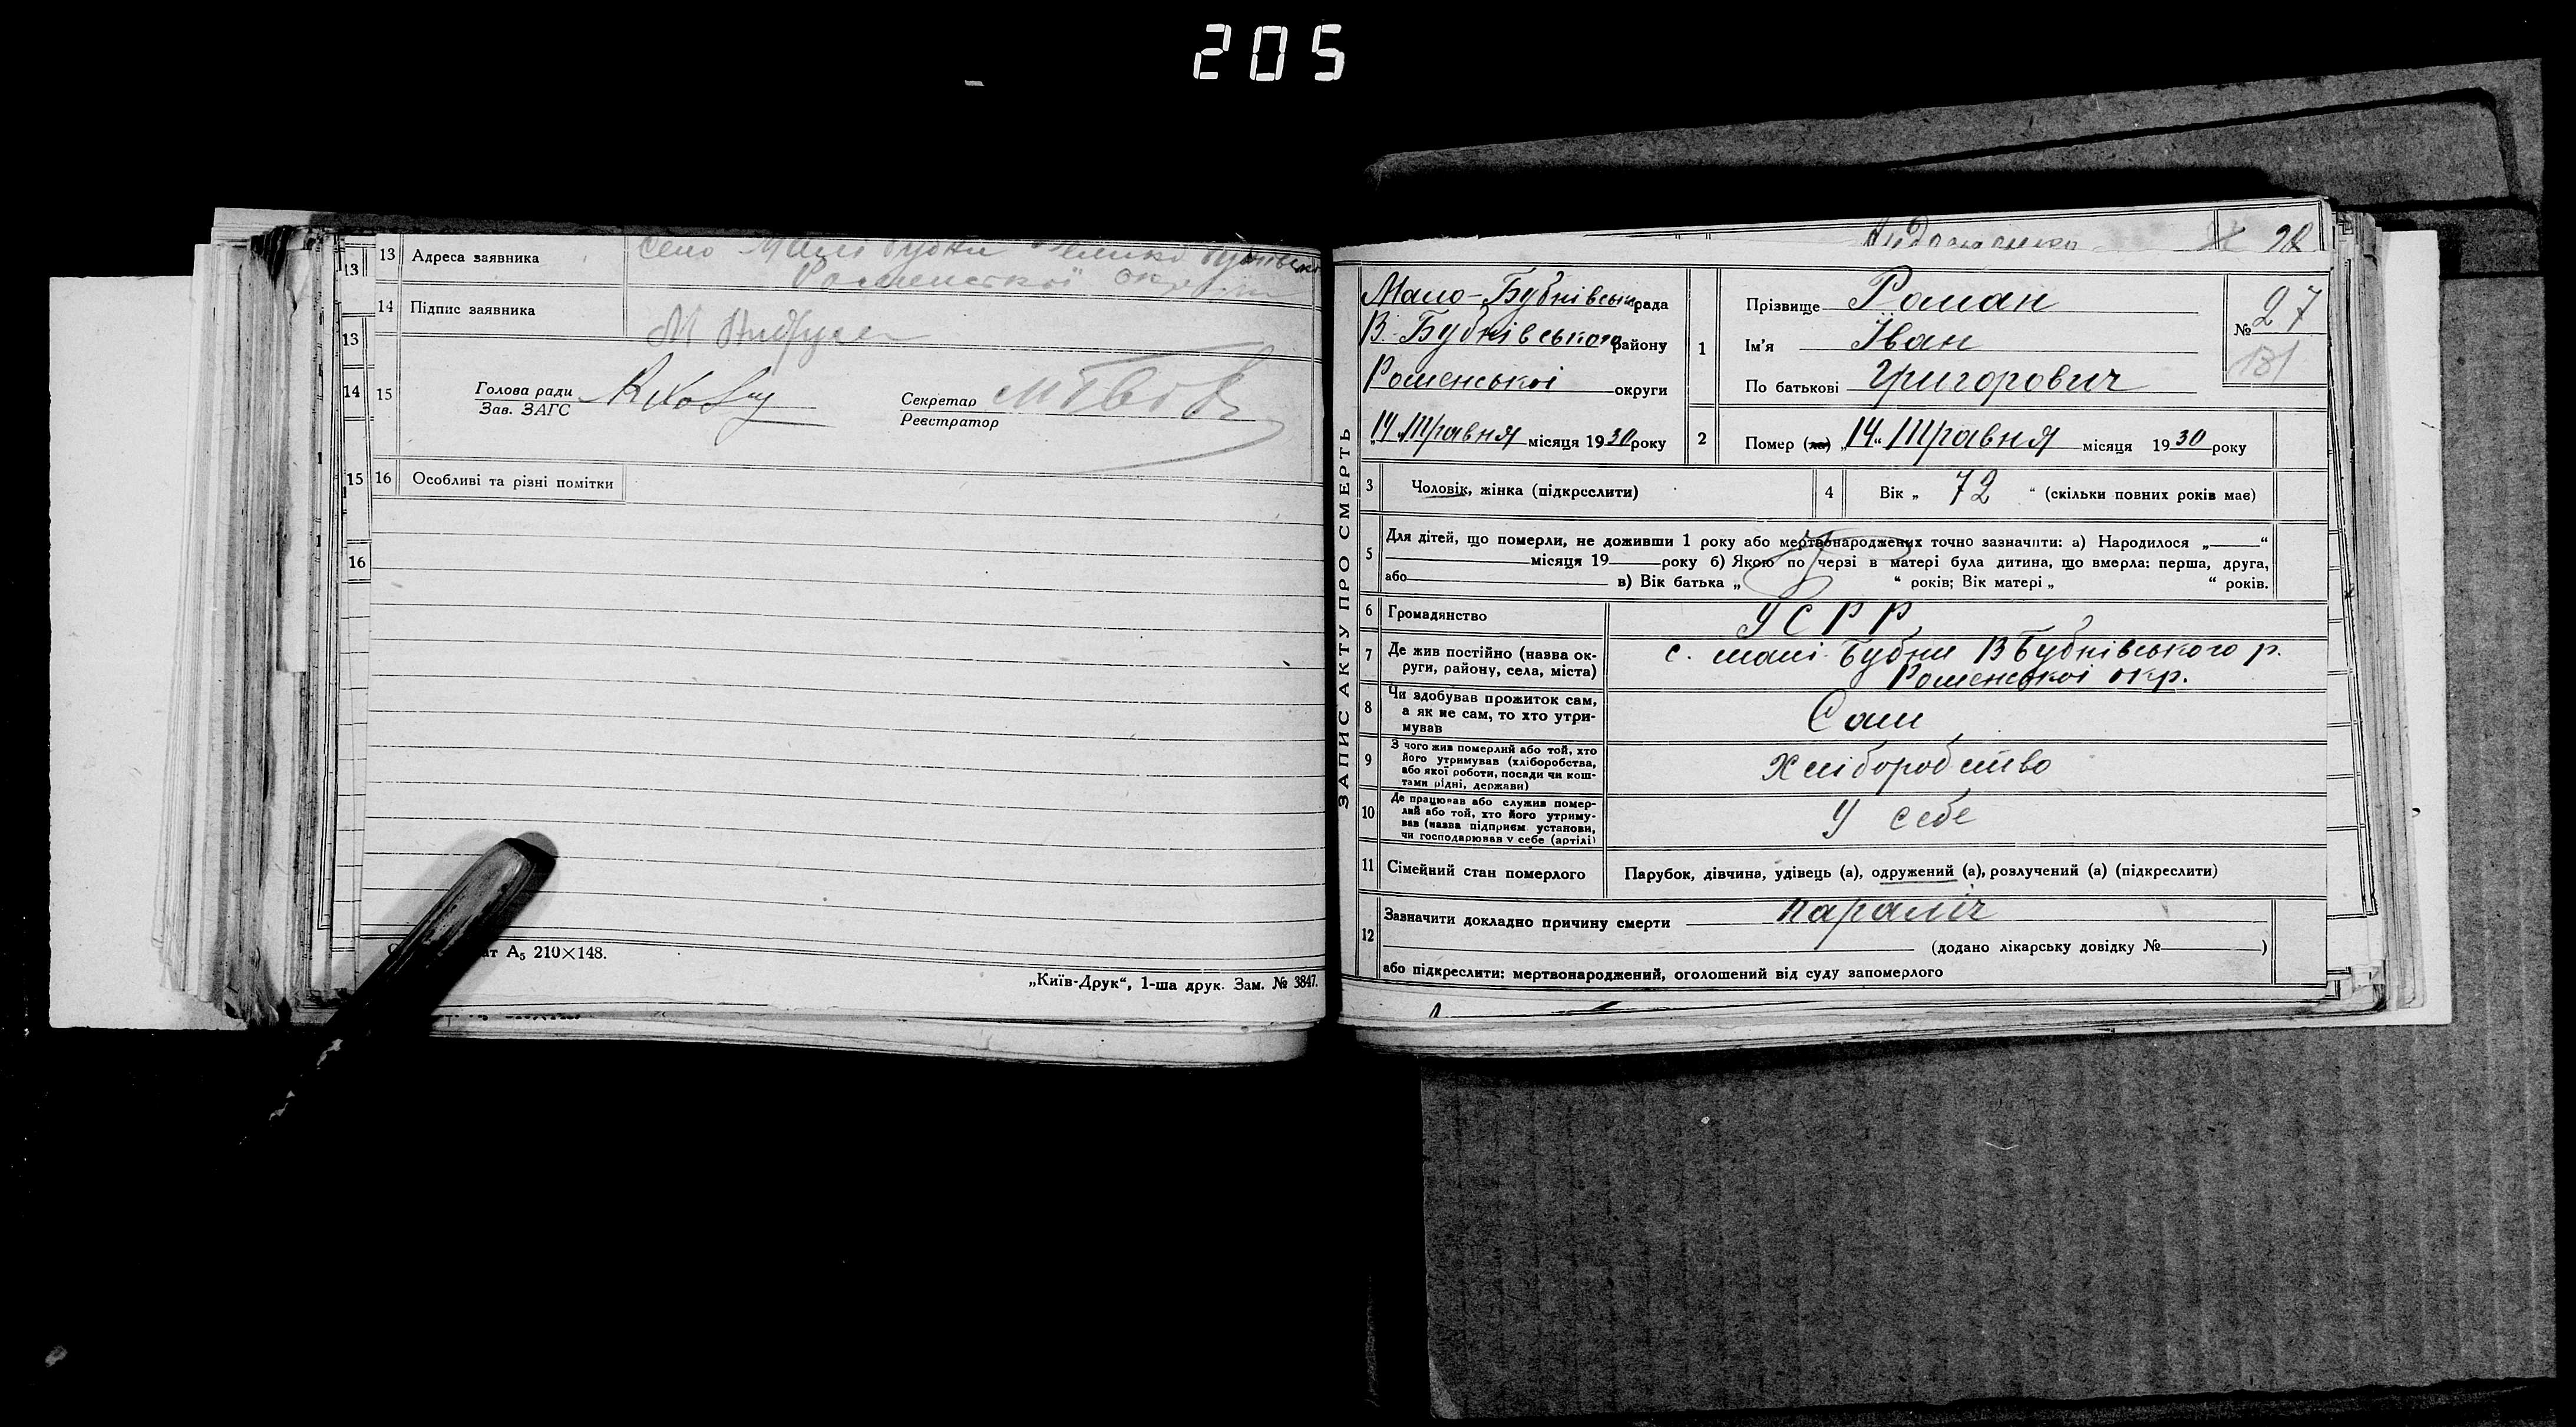 205
13 Адреса заявника село Малі Бубни
Роменської
14 Підпис заявника М
15 Голова ради
Зав. ЗАГС
Секретар
Реєстратор
16 Особливі та різні помітки
А₅ 210×148.
„Київ-Друк“, 1-ша друк. Зам. № 3847.
13
13
14
15
16
28
ЗАПИС АКТУ ПРО СМЕРТЬ
Мало-Бубнівська рада
В. Бубнівського району
Роменської округи
„14 Травня місяця 1930 року
1 Прізвище Роман
Ім'я Іван
По батькові Григорович
№ 27
131
2 Помер (ла) „14“ Травня місяця 1930 року
3 Чоловік, жінка (підкреслити)
4 Вік „ 72 “ (скільки повних років має)
5 Для дітей, що померли, не доживши 1 року або мертвонароджених точно зазначити: а) Народилося „ “
місяця 19 року б) Якою по черзі в матері була дитина, що вмерла: перша, друга,
або в) Вік батька „ “ років; Вік матері „ “ років.
6 Громадянство УСРР
7 Де жив постійно (назва ок-
руги, району, села, міста)
с. малі Бубни В Бубнівського р.
Роменської окр.
8 Чи здобував прожиток сам,
а як не сам, то хто утри-
мував
Сам
9 З чого жив померлий або той, хто
його утримував (хліборобства,
або якої роботи, посади чи кош-
тами рідні, держави)
Хліборобство
10 Де працював або служив помер-
лий або той, хто його утриму-
вав (назва підприєм. установи,
чи господарював у себе (артілі)
У себе
11 Сімейний стан померлого Парубок, дівчина, удівець (а), одружений (а), розлучений (а) (підкреслити)
12 Зазначити докладно причину смерти параліч
(додано лікарську довідку № )
або підкреслити: мертвонароджений, оголошений від суду запомерлого